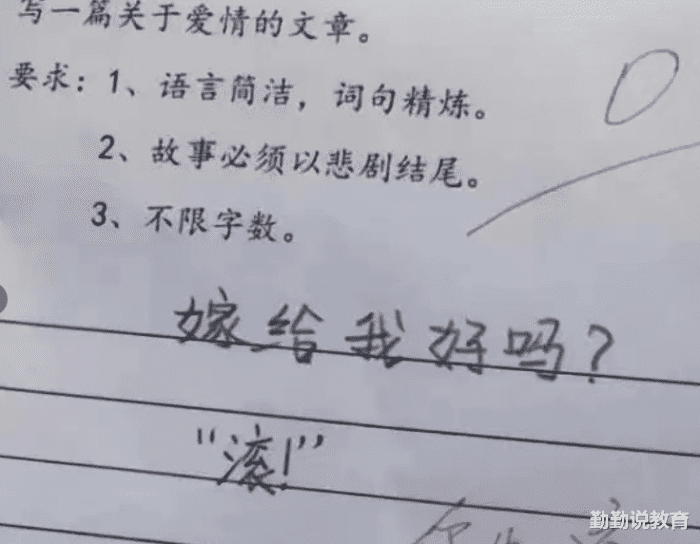 写一篇关于爱情的文章。
要求：1、语言简洁，词句精炼。
2、故事必须以悲剧结尾。
3、不限字数。
0
嫁给我好吗？
“滚！”
勤勤说教育